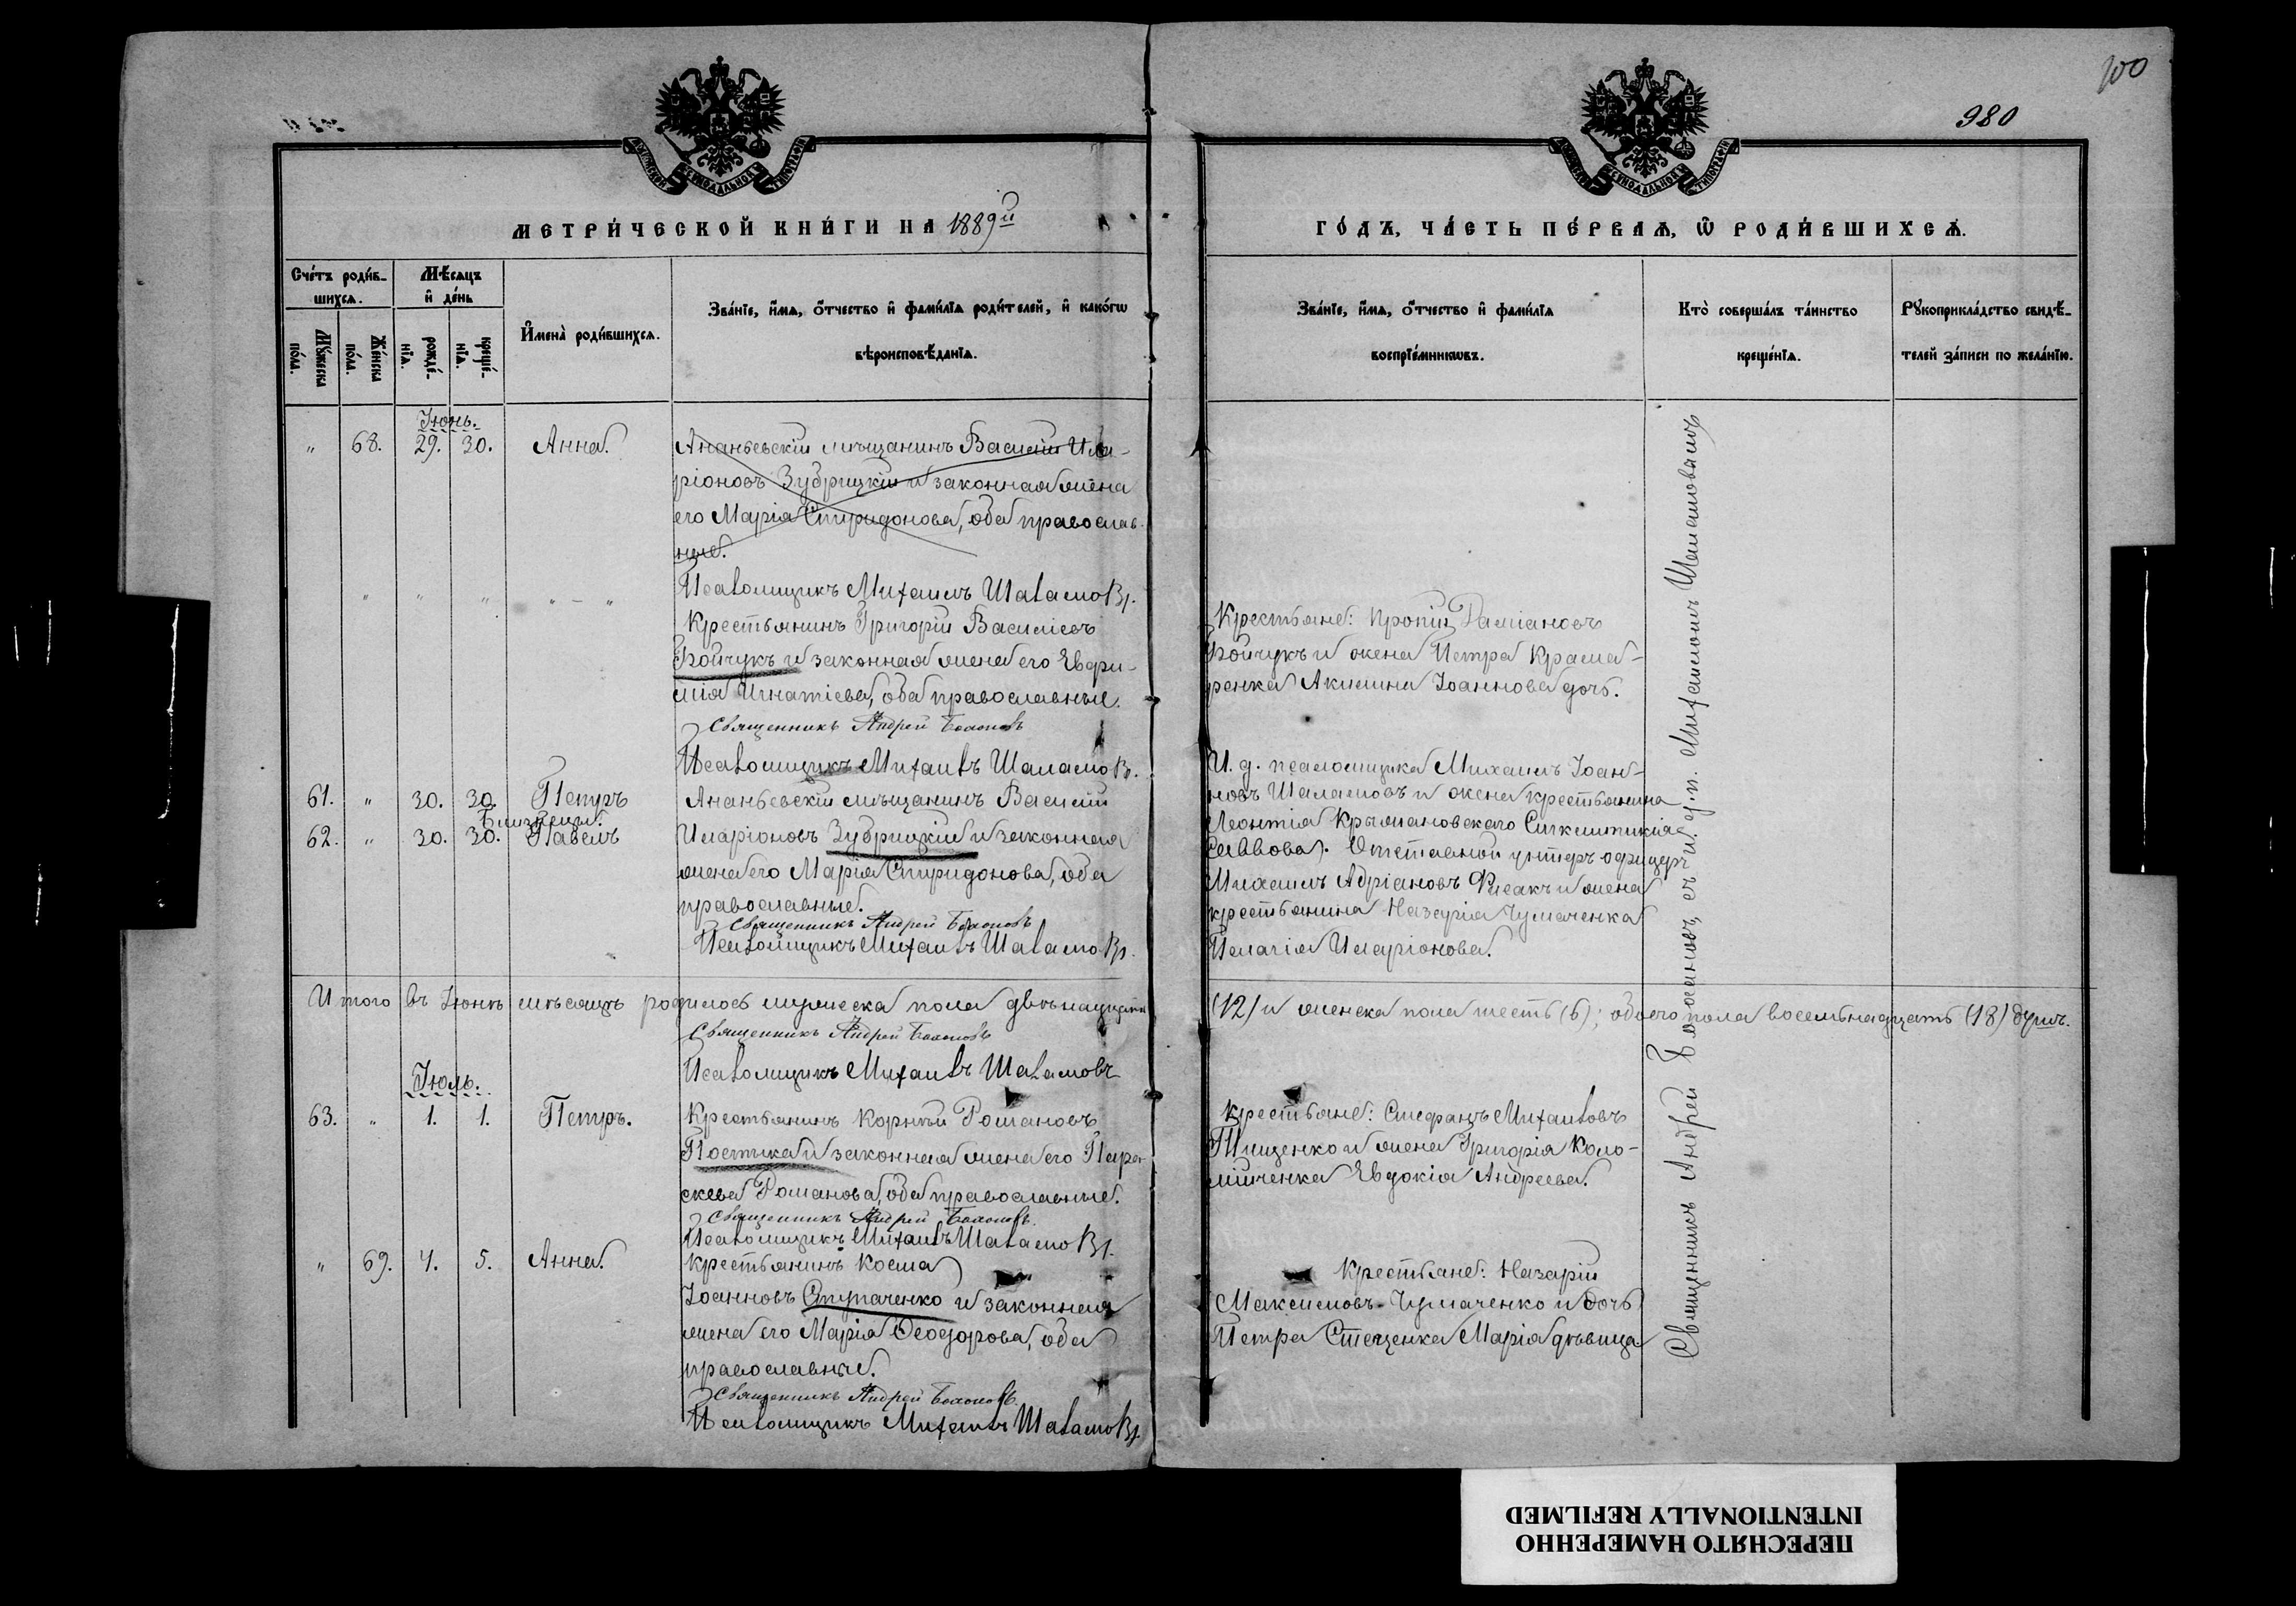 100
980
МЕТРИ́ЧЕСКОЙ КНИ́ГИ НА 1889й
ГО́ДЪ, ЧА́СТЬ ПЕ́РВАѦ, Ѿ РОДИ́ВШИХСѦ.
Сче́тъ роди́в-
шихсѧ.
Мѣ́сѧцъ
и҆ де́нь
Мꙋ́жеска
по́ла.
Же́нска
по́ла.
рожде́-
нїѧ.
креще́-
нїѧ.
И҆мена̀ роди́вшихсѧ.
Зва́нїе, и҆́мѧ, ѻ҆́тчество и҆ фами́лїѧ роди́телей, и҆ како́гѡ
вѣроисповѣ́данїѧ.
Зва́нїе, и҆́мѧ, ѻ҆́тчество и҆ фами́лїѧ
воспрїе́мникѡвъ.
Кто̀ соверша́лъ та́инство
креще́нїѧ.
Рꙋкоприкла́дство свидѣ́-
телей за́писи по жела́нїю.
Іюнь.
" 68. 29. 30. Анна.
Ананьевскій мѣщанинъ Василій Ила-
ріоновъ Зубрицкій и законная жена
его Марія Спиридонова, оба православ-
ные.
Псаломщикъ Михаилъ Шаламовъ.
" " " " — "
Крестьянинъ Григорій Василіевъ
Бойчукъ и законная жена его Евфи-
мія Игнатіева, оба православные.
Священникъ Андрей
Псаломщикъ Михаилъ Шаламовъ.
Крестьяне: Прокпій Даміановъ
Бойчукъ и жена Петра Крама-
ренка Акилина Іоаннова дочь.
61. " 30. 30. Петръ
Близнецы.
62. " 30. 30. Павелъ
Ананьевскій мѣщанинъ Василій
Иларіоновъ Зубрицкій и законная
жена его Марія Спиридонова, оба
православные.
Священникъ Андрей
Псаломщикъ Михаилъ Шаламовъ.
И. д. псаломщика Михаилъ Іоан-
новъ Шаламовъ и жена крестьянина
Леонтія Крыжановскаго
Саввова). Отставной унтеръ офицеръ
Михаилъ Адріановъ и жена
крестьянина Назарія Чумаченка
Пелагія Иларіонова.
Итого въ Іюнѣ мѣсяцѣ родилось мужеска пола двѣнадцать (12) и женска пола шесть (6); обоего пола восемьнадцать (18) душъ.
Священникъ Андрей
Псаломщикъ Михаилъ Шаламовъ
Іюль.
63. " 1. 1. Петръ.
Крестьянинъ Корнѣй Романовъ
Постика и законная жена его Пара-
скева Романова, оба православные.
Священникъ Андрей
Псаломщикъ Михаилъ Шаламовъ.
Крестьяне: Стефанъ Михаиловъ
Тищенко и жена Григорія Коло-
мійченка Евдокія Андреева.
" 69. 4. 5. Анна.
Крестьянинъ Косма
Іоанновъ Ступаченко и законная
жена его Марія Ѳеодорова, оба
православные.
Священникъ Андрей
Псаломщикъ Михаилъ Шаламовъ.
Крестьяне: Назарій
Максимовъ Чумаченко и дочь
Петра Стеценка Марія дѣвица
Священникъ Андрей съ и. д. п. Михаиломъ Шаламовымъ
ПЕРЕСНЯТО НАМЕРЕННО
INTENTIONALLY REFILMED